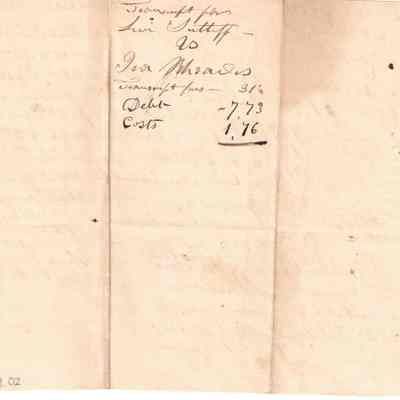 Transcript for
Levi Sutliff
vs
Ira Rhoades
Transcript fees — 31¼
Debt — 7,73
Costs 1,76
02